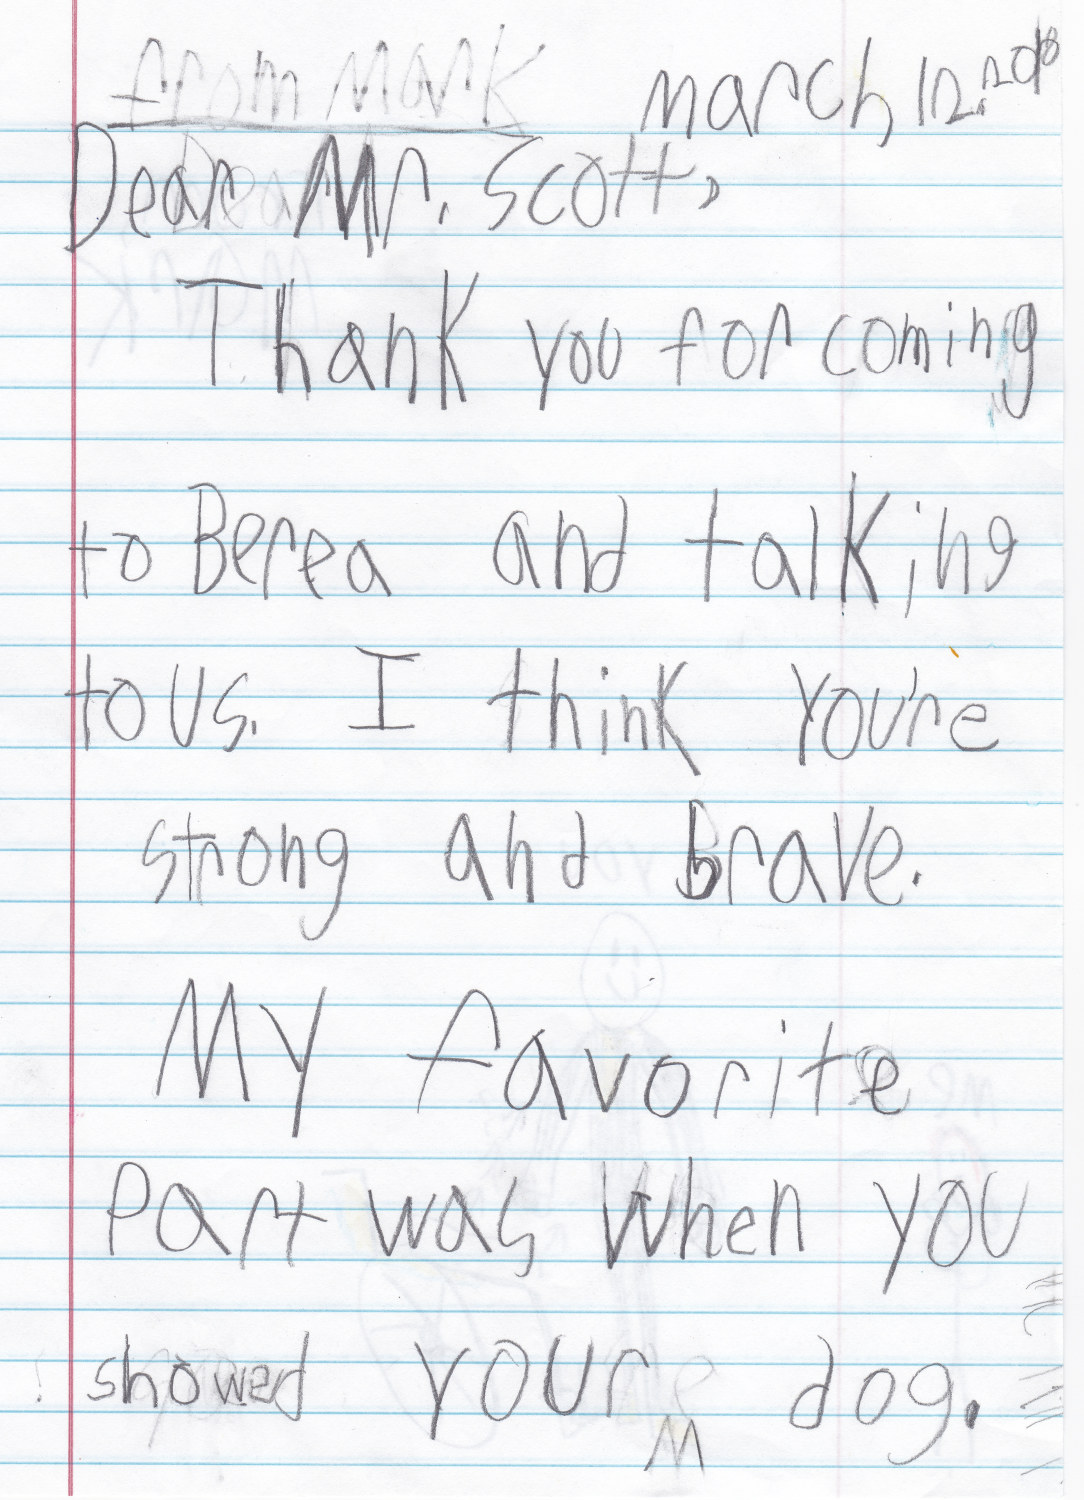 from Mark march 12, 2018
Dear Mr. Scott,
Thank you for coming
to Berea and talking
to us. I think you're
strong and brave.
My favorite
Part was when you
showed your dog.